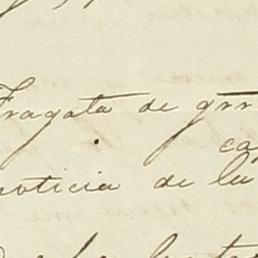 Fragata de grr
ca
noticia de la